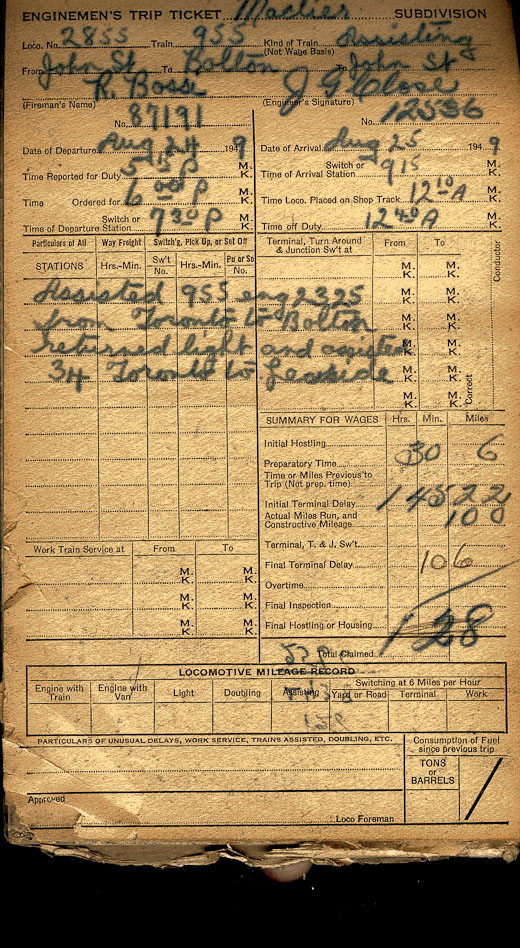 ENGINEMEN'S TRIP TICKET Mactier SUBDIVISION
Loco. No. 2855 Train 955 Kind of Train Assisting
(Not Wage Basis)
From John St To Bolton To John St
R. Ross
(Fireman's Name) (Engineer's Signature)
No. 87191 No. 12536
Date of Departure Aug 24 1949 Date of Arrival Aug 25 1949
Time Reported for Duty 5 45 P M. K. Switch or Time of Arrival Station 915 M. K.
Time Ordered for 6 00 P M. K. Time Loco. Placed on Shop Track 12 10 A M. K.
Switch or Time of Departure Station 7 30 P M. K. Time off Duty 12 40 A M. K.
Particulars of All Way Freight Switch'g, Pick Up, or Set Off Terminal, Turn Around & Junction Sw't at From To
STATIONS Hrs.-Min. Sw't No. Hrs.-Min. Pu or So No. M. K. M. K. Conductor
Assisted 955 eng 2325 M. K. M. K.
from Toronto to Bolton M. K. M. K.
returned light and assisted M. K. M. K.
34 Toronto to Leaside M. K. M. K.
M. K. M. K. Correct
SUMMARY FOR WAGES Hrs. Min. Miles
Initial Hostling
Preparatory Time 30 6
Time or Miles Previous to Trip (Not prep. time)
Initial Terminal Delay 1 45 22
Actual Miles Run, and Constructive Mileage 100
Terminal, T. & J. Sw't.
Work Train Service at From To Final Terminal Delay 106
M. K. M. K. Overtime
M. K. M. K. Final Inspection
M. K. M. K. Final Hostling or Housing 128
Total Claimed
LOCOMOTIVE MILEAGE RECORD
Engine with Train Engine with Van Light Doubling Assisting Switching at 6 Miles per Hour
Yard or Road Terminal Work
PARTICULARS OF UNUSUAL DELAYS, WORK SERVICE, TRAINS ASSISTED, DOUBLING, ETC. Consumption of Fuel since previous trip
TONS or BARRELS
Approved
Loco Foreman